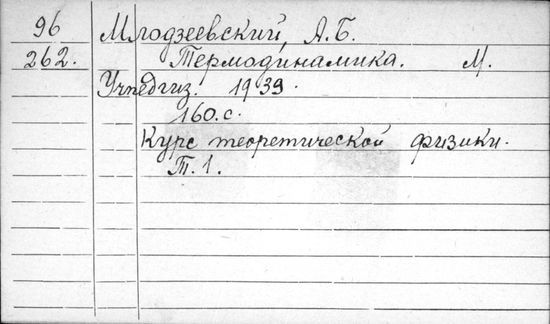 96 Млодзеевский, А.Б.
262. Термодинамика. М.
Учпедгиз. 1939.
160.с.
Курс теоретической физики.
Т.1.